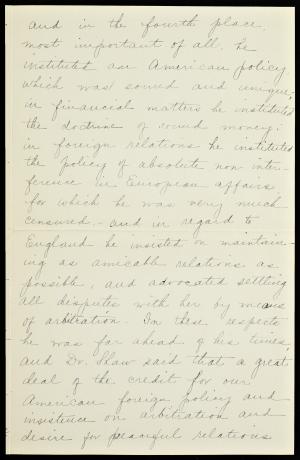 and in the fourth place,
most important of all, he
instituted an American policy,
which was sound and unique;
in financial matters he instituted
the doctrine of sound money;
in foreign relations he instituted
the policy of absolute non-inter-
ference in European affairs
for which he was very much
censured, - and in regard to
England he insisted on maintain-
ing as amicable relations as
possible, and advocated settling
all disputes with her by means
of arbitration. In these respects
he was far ahead of his times,
and Dr. Shaw said that a great
deal of the credit for our
American foreign policy and
insistence on arbitration and
desire for peaceful relations